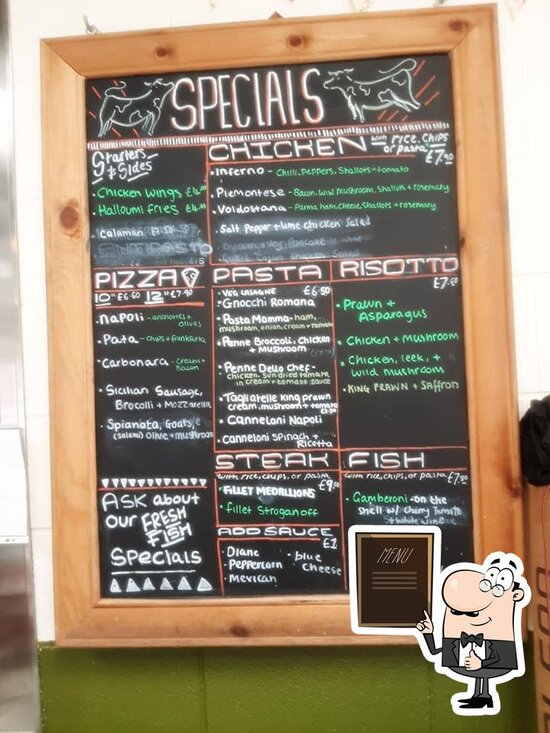 SPECIALS
Starters
+ Sides
• Chicken Wings
• Halloumi fries
Calamari
ANTIPASTO
PIZZA
10" £6.60 12" £7.90
• Napoli - anchovies +
Olives
• Pata - chips + frankfurta
• Carbonara - Cream +
Bacon
• Sicilian Sausage,
Brocolli + Mozzarella
Spianata, Goats,
(salami) Olive + mushroom
ASK about
our FRESH
FISH
Specials
CHICKEN with rice, chips
or pasta £7.90
• Inferno - Chilli, Peppers, Shallots + tomato
• Piemontese - Bacon, Wild Mushroom, Shallots + rosemary
• Valdostana - Parma ham, Cheese, Shallots + rosemary
Salt Pepper + lime chicken Salad
PASTA
£6.50
• VEG LASAGNE
• Gnocchi Romana
• Pasta Mamma - ham,
mushroom, onion, cream + tomato
• Penne Broccoli, Chicken
+ Mushroom
• Penne Dello Chef -
chicken, Sun dried tomato,
in cream + tomato sauce
• Tagliatelle king prawn
cream, mushroom + tomato
• Canneloni Napoli
• canneloni Spinach +
Ricotta
RISOTTO
£7.60
• Prawn +
Asparagus
• Chicken + mushroom
• Chicken, leek, +
wild mushroom
• KING PRAWN + Saffron
STEAK
with rice, chips, or pasta
£9.90
• FILLET MEDALLIONS
• Fillet Stroganoff
ADD SAUCE
£1
• Diane
• Peppercorn
• Mexican
• blue
Cheese
FISH
with rice, chips, or pasta £7.90
• Gamberoni - on the
shell w/ cherry Tomato
+ white wine
MENU